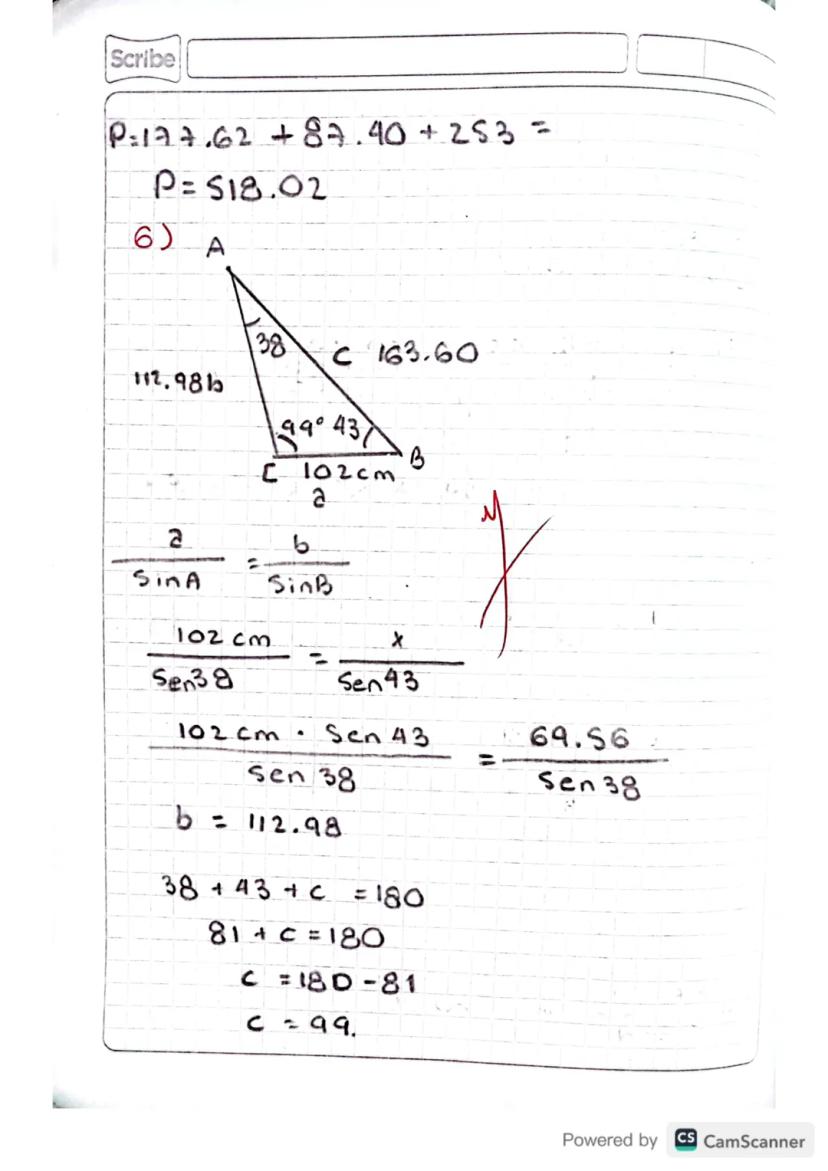 Scribe
P=177.62 + 87.40 + 253 =
P= 518.02
6) A
38 c 163.60
112.98 b
99° 43 B
C 102cm
a
a / SinA = b / SinB
102 cm / Sen38 = x / Sen43
102 cm · Sen 43 / Sen 38 = 69.56 / Sen 38
b = 112.98
38 + 43 + c = 180
81 + c = 180
c = 180 - 81
c = 99.
Powered by CS CamScanner